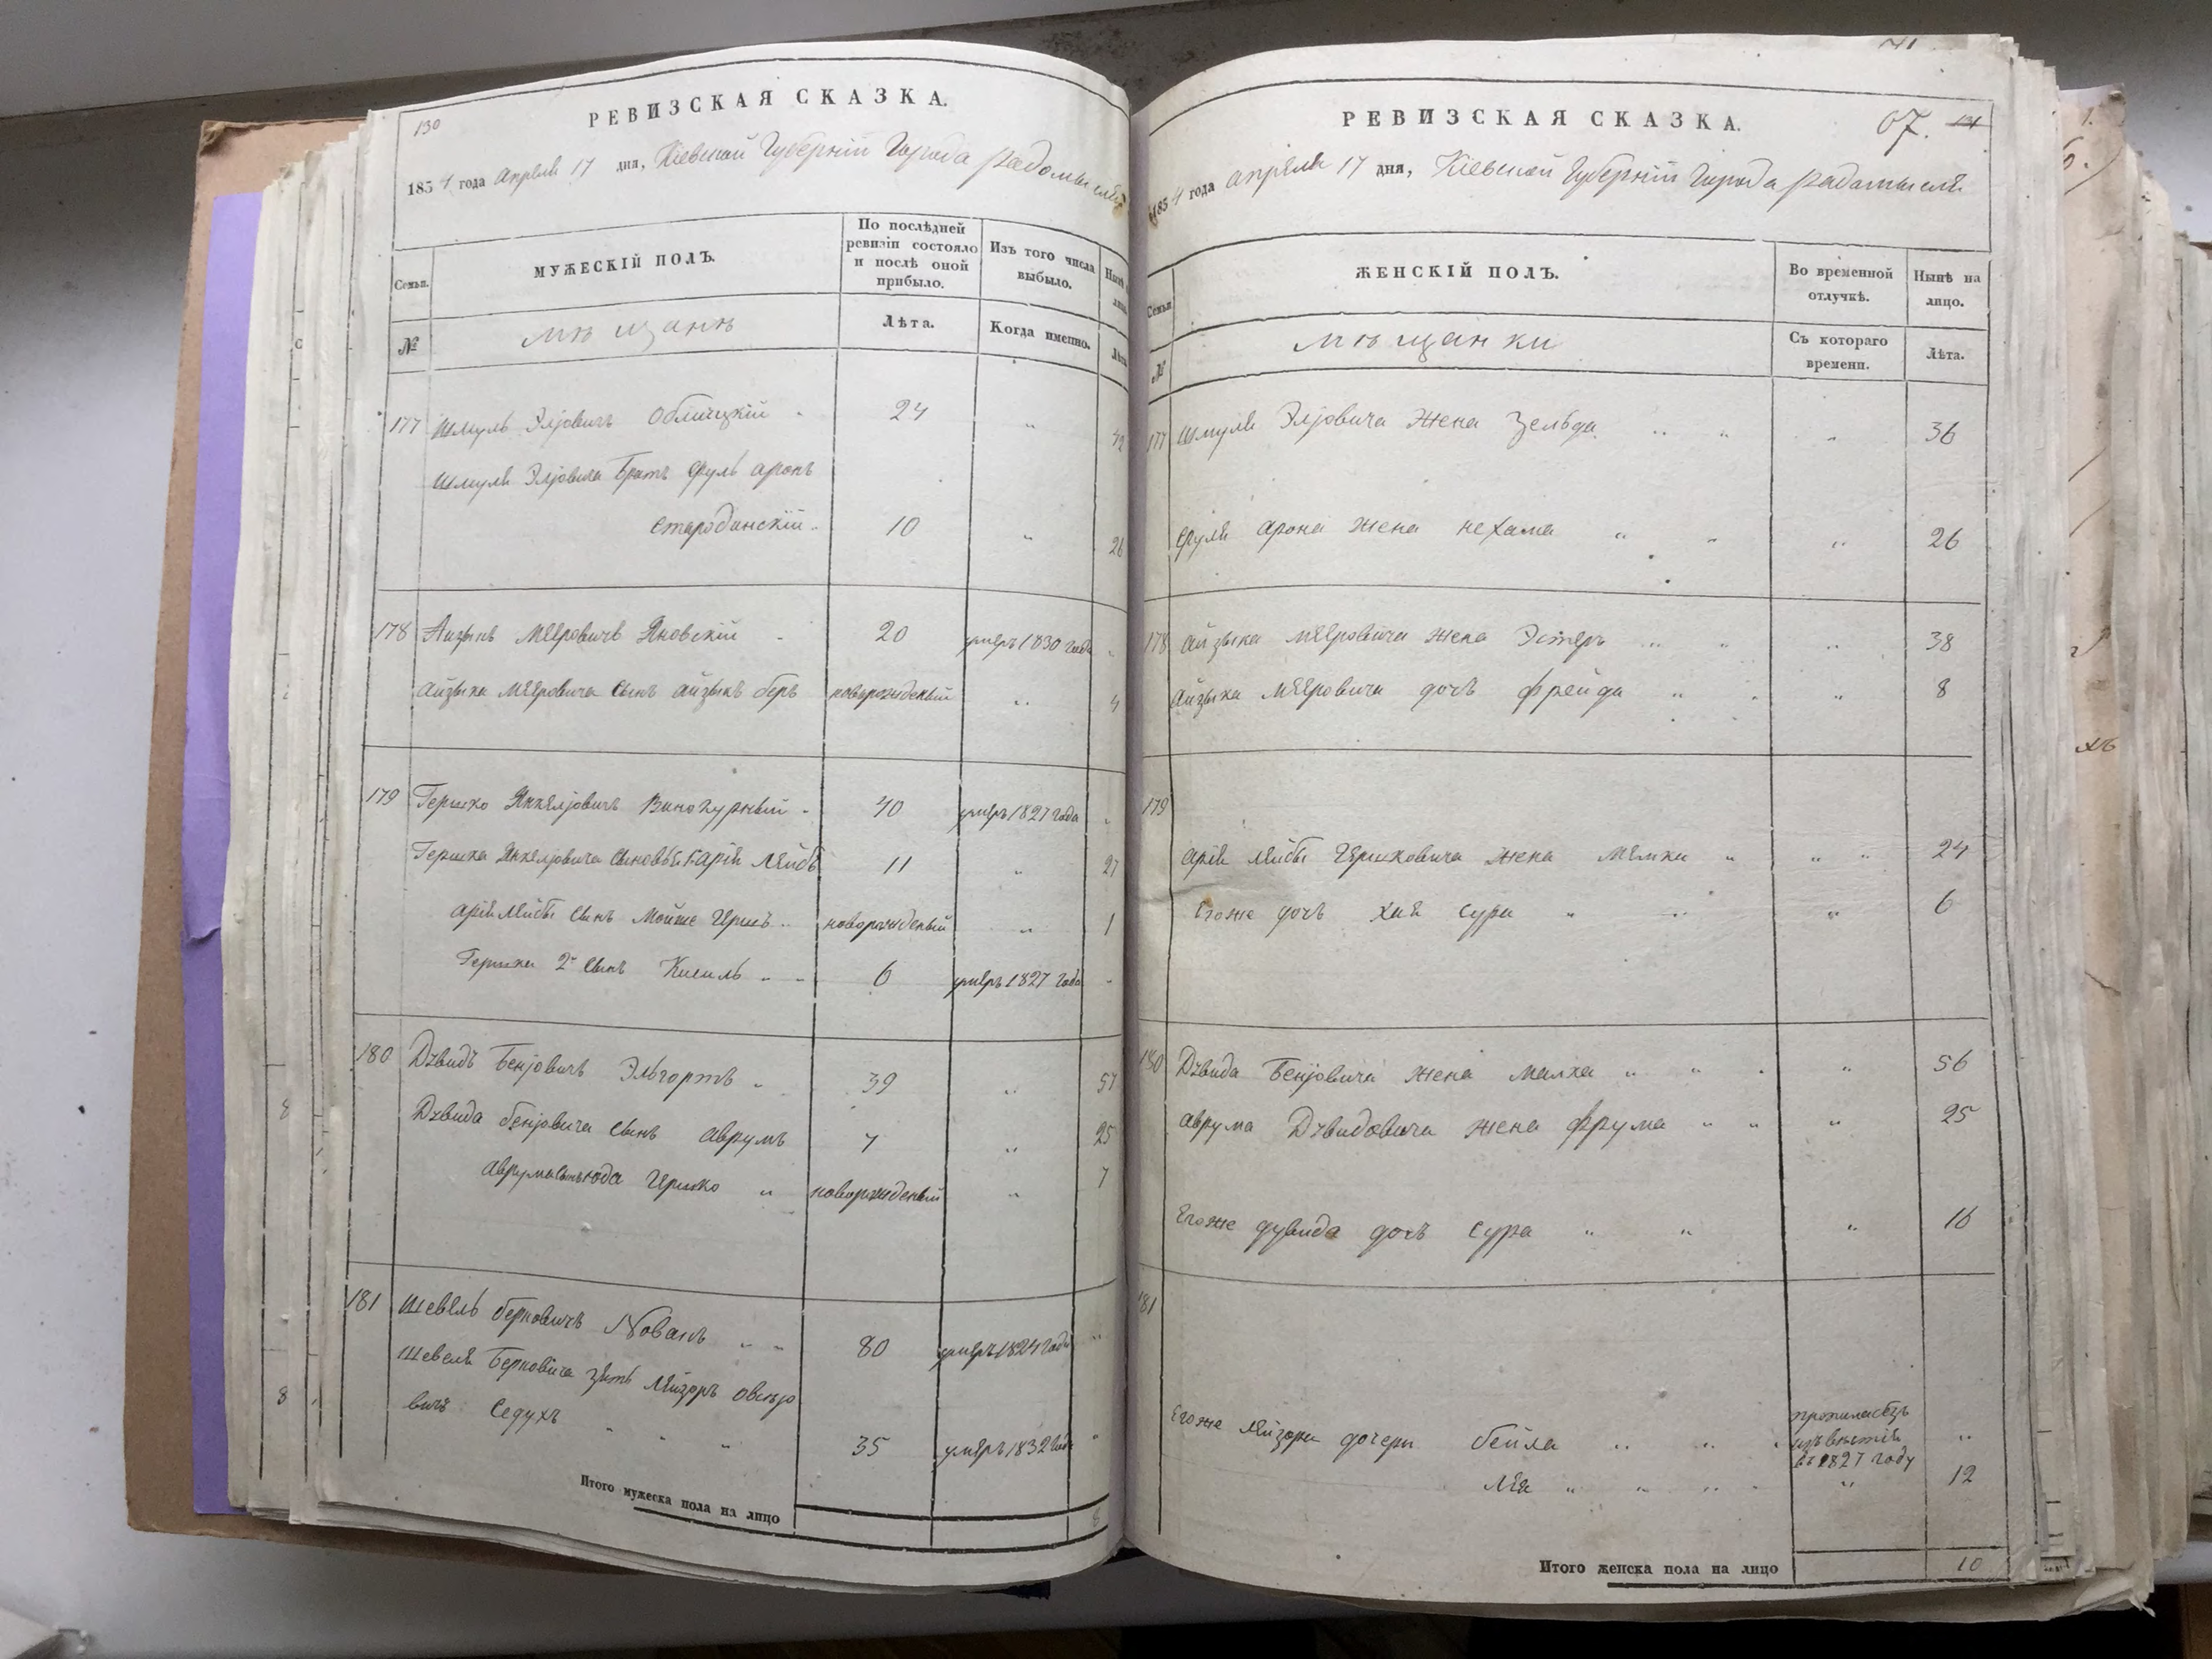 130
РЕВИЗСКАЯ СКАЗКА.
1834 года апреля 17 дня, Кіевской Губерніи Города Радомысля
Семьи.
МУЖЕСКІЙ ПОЛЪ.
По послѣдней ревизіи состояло и послѣ оной прибыло.
Изъ того числа выбыло.
№
мѣщанѣ
Лѣта.
Когда именно.
177 Шмуль Эліовичъ Облицкій 24 „
Шмуля Эліовича братъ Сруль Аронъ
Стародинскій 10 „ 26
178 Айзыкъ Мееровичъ Яновскій 20 умеръ 1830 года „
Айзыка Мееровича сынъ Айзыкъ Беръ новорожденый „ 4
179 Гершко Янкеліовичъ Винокурный 40 умеръ 1827 года „
Гершка Янкеліовича сыновья 1. Арія Лейбъ 11 „ 27
Арія Лейбы сынъ Мойше Гершъ новорожденый „ 1
Гершка 2й сынъ Кисиль 6 умеръ 1827 года „
180 Дувидъ Беніовичъ Эльгортъ „ 39 „ 57
Дувида Беніовича сынъ Аврумъ 7 „ 25
Аврума сынъ Юда Гершко „ новорожденый „ 7
181 Шевель Берковичъ 80 умеръ 1824 года „
Шевеля Берковича зять Лейзоръ Овсѣјо
вичъ Седухъ „ „ „ 35 умеръ 1832 года „
Итого мужеска пола на лицо 8
67. 131
РЕВИЗСКАЯ СКАЗКА.
1834 года апреля 17 дня, Кіевской Губерніи Города Радомысля
Семьи
ЖЕНСКІЙ ПОЛЪ.
Во временной отлучкѣ.
Нынѣ на лицо.
№
мѣщанки
Съ котораго времени.
Лѣта.
177 Шмуля Эліовича жена Зельда „ „ „ 36
Сруля Арона жена Нехама „ „ „ 26
178 Айзыка Мееровича жена Эстеръ „ „ „ 38
Айзыка Мееровича дочь Фрейда „ „ „ 8
179
Арія Лейбы Гершковича жена Малка „ „ „ 24
Егоже дочь Хая Сура „ „ „ 6
180 Дувида Беніовича жена Малка „ „ „ 56
Аврума Дувидовича жена Фрума „ „ „ 25
Егоже Дувида дочь Сура „ „ „ 16
181
Егоже Лейзора дочери Бейла „ „ пропала безъ извѣстія въ 1827 году „
Лея „ „ „ „ 12
Итого женска пола на лицо 10